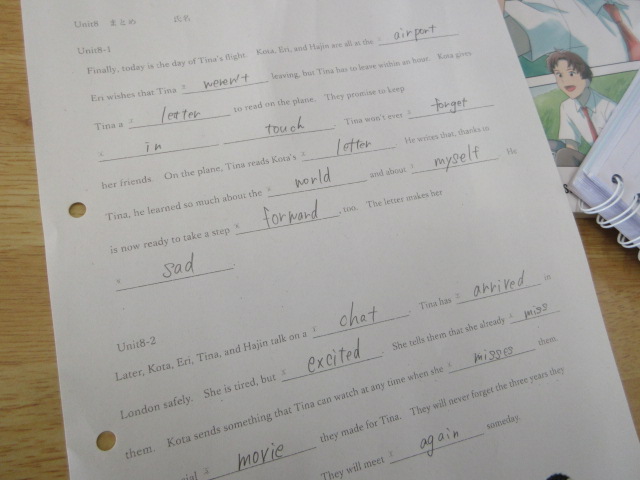 Unit8 まとめ 氏名
Unit8-1
Finally, today is the day of Tina's flight. Kota, Eri, and Hajin are all at the airport
Eri wishes that Tina weren't leaving, but Tina has to leave within an hour. Kota gives
Tina a letter to read on the plane. They promise to keep
in touch. Tina won't ever forget
her friends. On the plane, Tina reads Kota's letter. He writes that, thanks to
Tina, he learned so much about the world and about myself. He
is now ready to take a step forward, too. The letter makes her
sad.
Unit8-2
Later, Kota, Eri, Tina, and Hajin talk on a chat. Tina has arrived in
London safely. She is tired, but excited. She tells them that she already miss
them. Kota sends something that Tina can watch at any time when she misses them.
movie they made for Tina. They will never forget the three years they
They will meet again someday.